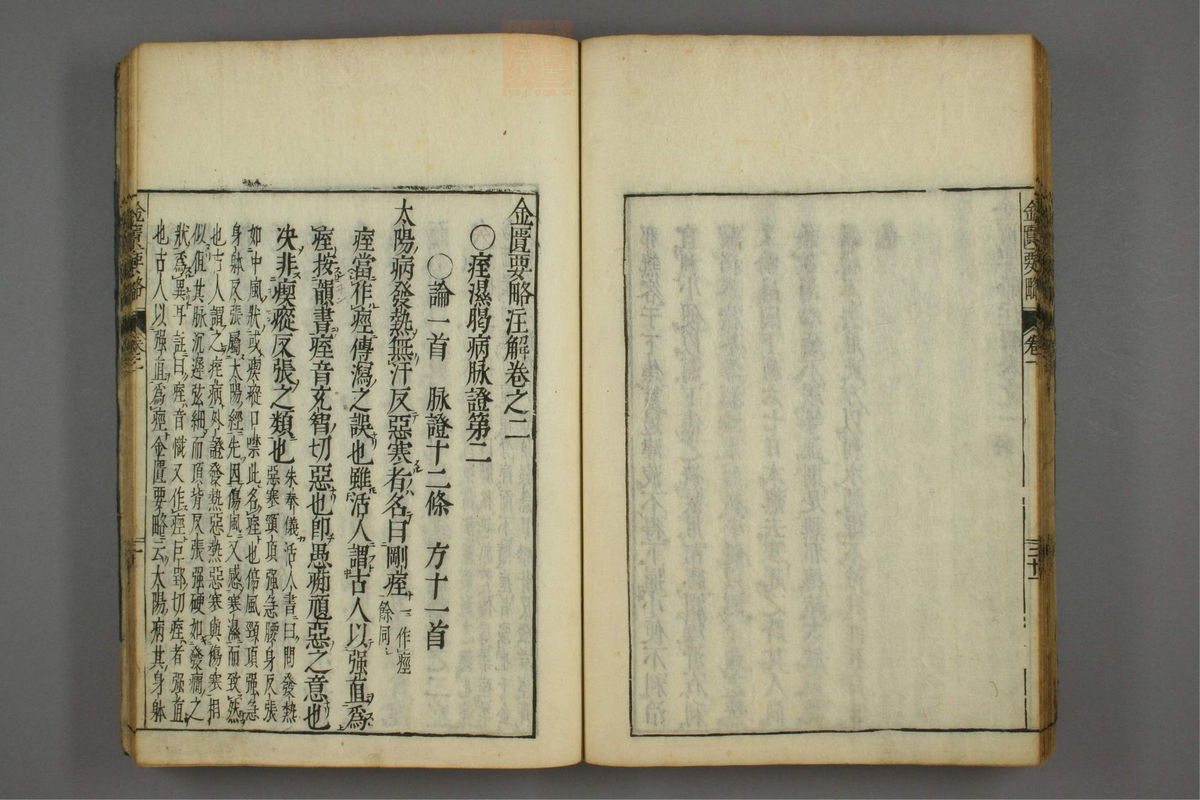 金匱要略
卷一
三十一
金匱要略注解卷之二
○痓濕暍病脉證第二
○論一首 脉證十二條 方十一首
太陽病發熱無汗反惡寒者名曰剛痓
一作痙
餘同
痓當作痙傳寫之誤也雖活人謂古人以强直爲
痓按韻書痓音充智切惡也即愚痴頑惡之意也
决非瘈瘲反張之類也
朱奉儀活人書曰問發熱
惡寒頸項强急腰身反張
如中風狀或瘈瘲口噤此名痓也傷風頸項强急
身躰反張屬太陽經先因傷風又感寒濕而致然
也古人謂之痓病外證發熱惡熱惡寒與傷寒相
似但其脉沉遲弦細而項背反張强硬如發癇之
狀爲異耳註曰痓音熾又作痙巨郢切痓者强直
也古人以强直爲痙金匱要略云太陽病其身躰
金匱要略
卷之二
一